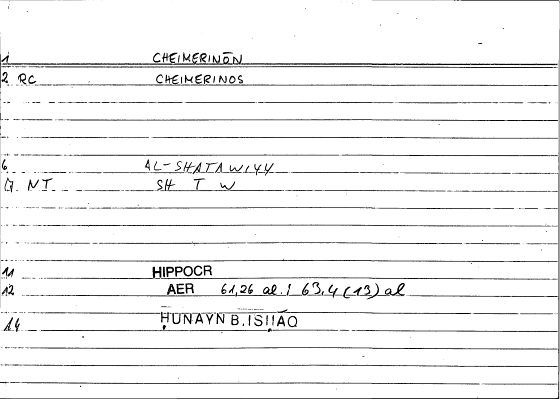 1 CHEIMERINŌN
2 RC CHEIMERINOS
6 AL-SHATAWIYY
7 NT. SH T W
11 HIPPOCR
12 AER 61,26 al.; 63,4 (13) al
14 ḤUNAYN B. ISḤĀQ